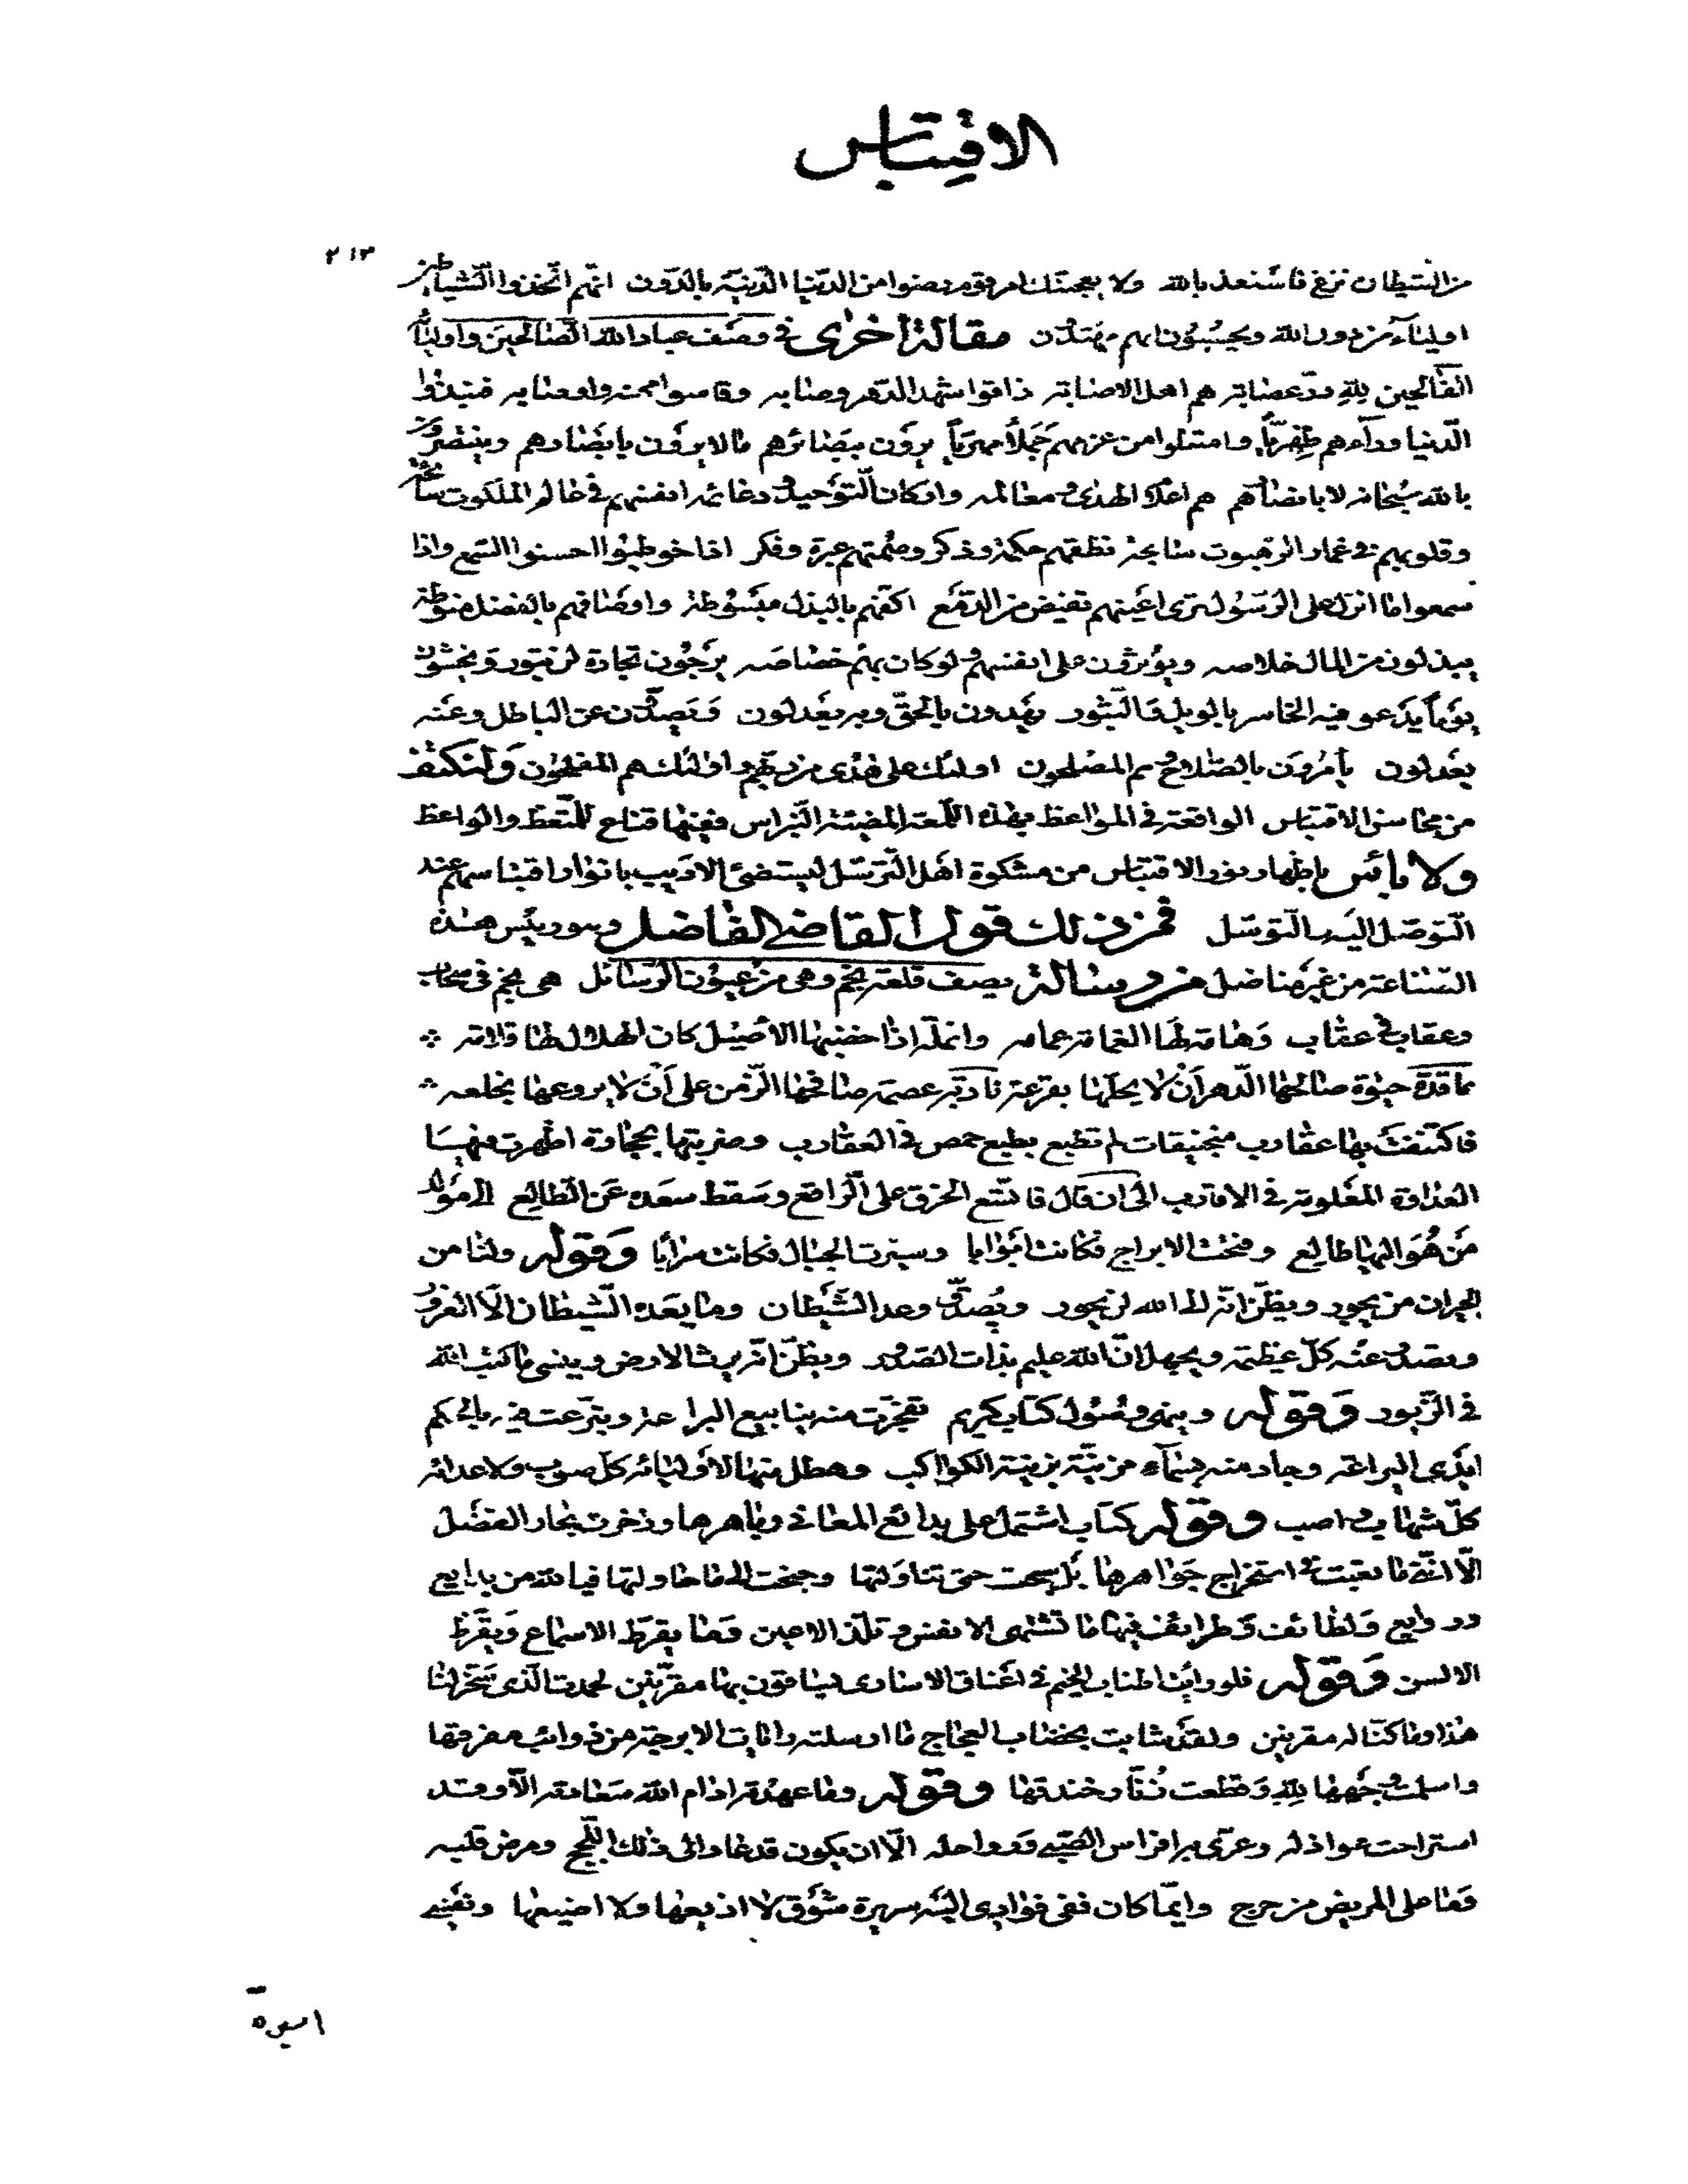 الاقتباس
٢١٣
من الشيطان نزغ فاستعذ بالله ولا يعجبنك امر قوم رضوا من الدنيا الدنية بالدون انهم اتخذوا الشياطين
اولياء من دون الله ويحسبون انهم مهتدون مقالة اخرى في وصف عباد الله الصالحين واوليائه
الفالحين لله در عصابة هم اهل الاصابة ذاقوا شهد الدهر وصابه وقاسوا محنه واوصابه فنبذوا
الدنيا وراءهم ظهريا وامتثلوا من عزمهم يرون ببصائرهم ما لا يرون بابصارهم وينتصرون
بالله سبحانه لا بانصارهم هم اعلام الهدى ومعالمه واركان التوحيد ودعائمه انفسهم في عالم الملكوت سائحة
وقلوبهم في غمار الرهبوت سابحة نطقهم حكمة وذكر وصمتهم عبرة وفكر اذا خوطبوا احسنوا السمع واذا
سمعوا ما انزل على الرسول ترى اعينهم تفيض من الدمع اكفهم بالبذل مبسوطة واوصافهم بالفضل منوطة
يبذلون من المال خلاصه ويؤثرون على انفسهم ولو كان بهم خصاصه يرجون تجارة لن تبور ويخشون
يوما يدعو فيه الخاسر بالويل والثبور يهدون بالحق وبه يعدلون ويصدون عن الباطل وعنه
يعدلون يأمرون بالصلاح وهم المصلحون اولئك على هدى من ربهم واولئك هم المفلحون ولنكتف
من محاسن الاقتباس الواقعة في المواعظ بهذه اللمعة المضيئة النبراس ففيها قناع للمتعظ والواعظ
ولا بأس باظهار نور الاقتباس من مشكوة اهل الترسل ليستضئ الاديب بانوار اقتباسهم عند
التوصل اليه والتوسل فمن ذلك قول القاضي الفاضل وهو رئيس هذه
الصناعة من غير مناضل من رسالة يصف قلعة نجم وهي من عيون الرسائل هي نجم في سحاب
وعقاب في عقاب وهامة لها الغمامة عمامه وانملة اذا خضبها الاصيل كان الهلال لها قلامه
عاقدة حبوة صالحها الدهر ان لا يحلها بقرعه نادبة عصمة صافحها الزمن على ان لا يروعها بخلعه
فاكتنفت بها عقارب منجنيقات لم تطبع بطبع حمص في العقارب وضربتها بحجارة اظهرت فيها
العداوة المعلومة في الاقارب الى ان قال فاتسع الخرق على الراقع وسقط سعده عن الطالع الى مولد
من هو اليها طالع وفتحت الابراج فكانت ابوابا وسيرت الجبال فكانت سرابا وقوله ولنا من
الجيران من يجور ويظن انه الى الله لن يحور ويصدق وعد الشيطان وما يعده الشيطان الا الغرور
ويصدر عنه كل عظيمة ويجهل ان الله عليم بذات الصدور ويظن انه يرث الارض وينسى ما كتب الله
في الزبور وقوله وينهى وصول كتاب كريم تفجرت منه ينابيع البراعة
ايدى اليراعة وجاد منه سماء مزينة بزينة الكواكب وهطل منها لاوليائه كل صوب ولاعدائه
كل شهاب واصب وقوله كتاب اشتمل على بدائع المعاني وباهرها وزخرت بحار الفضل
الا انني ما تعبت في استخراج جواهرها بل سبحت حتى تناولتها وجنحت الى ما حاولتها فيالله من بدايع
روايع ولطائف وطرائف فيها ما تشتهي الانفس وتلذ الاعين وما يقرط الاسماع ويقرظ
الالسن وقوله فلو رأيت اطناب الخيم في اعناق الاسارى يساقون بها مقرنين لحمدت الذي سخر لنا
هذا وما كنا له مقرنين ولقد شابت بخضاب العجاج ما ارسلته رايات الابرجة من ذوائب مفرقها
واسلمت وجهها لله وقطعت زنار خندقها وقوله وما عهدته ادام الله سعادته الا وقد
استراحت عواذله وعرى به افراس الصبى ورواحله الا ان يكون قد عاد الى ذلك اللجج ومرض قلبه
فما على المريض من حرج وايما كان ففي فؤادي اليه سريرة شوق لا اذيعها ولا اضيعها ونفسي
اسيرة